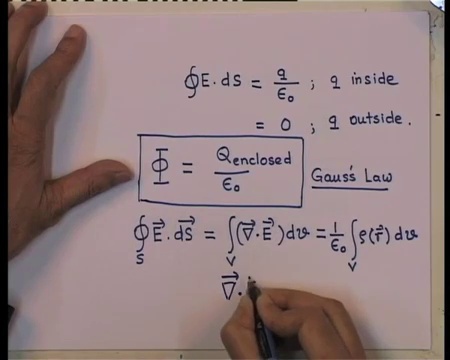 ∮E.ds = q/ε₀ ; q inside
= 0 ; q outside.
Φ = Qenclosed/ε₀ Gauss's Law
∮_S E⃗.dS⃗ = ∫_V (∇⃗.E⃗)dv = 1/ε₀ ∫_V ρ(r⃗)dv
∇⃗.